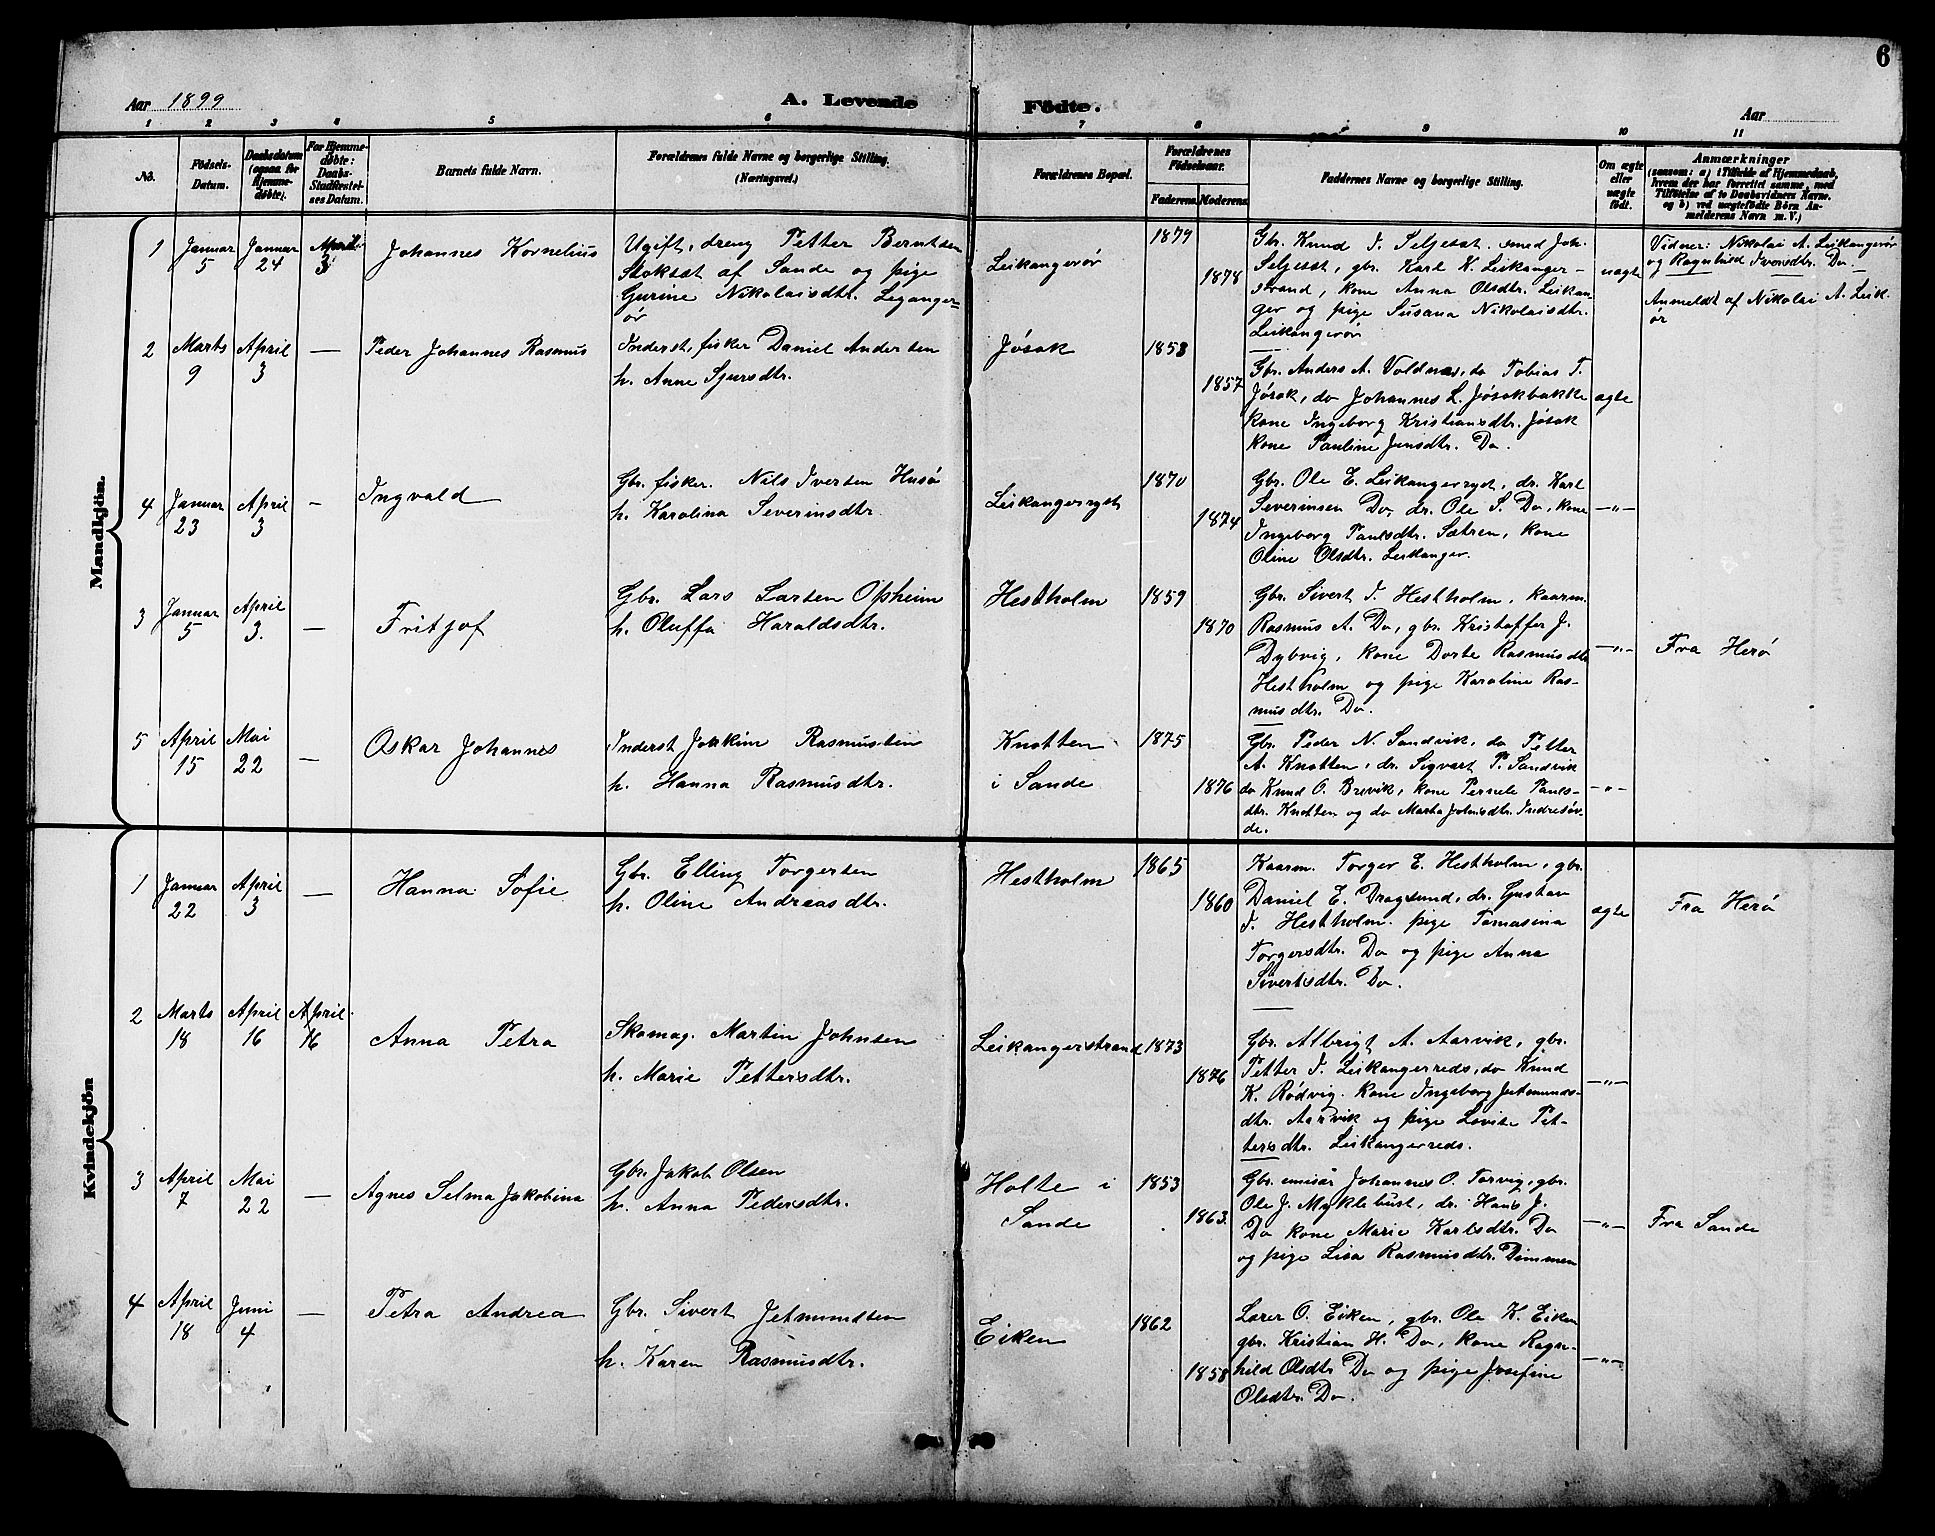 6
Aar 1899
A. Levende Födte.
Aar
1 2 3 4 5 6 7 8 9 10 11
No.
Födsels-Datum.
Daabsdatum (ogsaa for Hjemme-døbte).
For Hjemme-døbte: Daabs-Stadfæstel-ses Datum.
Barnets fulde Navn.
Forældrenes fulde Navne og borgerlige Stilling. (Næringsvei.)
Forældrenes Bopæl.
Forældrenes Födselsaar.
Faderens. Moderens.
Faddernes Navne og borgerlige Stilling.
Om ægte eller uægte födt.
Anmærkninger
(saasom: a) i Tilfælde af Hjemmedaab, hvem der har forrettet samme, med Tilföielse af to Daabsvidners Navne. og b) ved uægtefödte Börn An-melderens Navn m. V.)
Mandkjön.
1 Januar 5 Januar 24 April 3 Johannes Kornelius
Ugift, dreng Petter Berntsen
Stoksæt af Sande og pige
Gurine Nikolaisdtr. Leganger-
ör
Leikangerør 1879 1878
Gbr. Knud J. Seljesæt, smed Joh.
Seljesæt, gbr. Karl K. Leikanger-
strand, kone Anna Olsdtr. Leikan-
ger og pige Susana Nikolaisdtr.
Leikangerør
uægte
Vidner: Nikolai A. Leikangerør
og Ragnhild Iversdtr. Do
Anmeldt af Nikolai A. Leik.
ør
2 Marts 9 April 3 — Peder Johannes Rasmus
Inderst, fisker Daniel Andersen
h. Anne Sjursdtr.
Jøsok 1858 1857
Gbr. Anders A. Voldnes, do Tobias T.
Jøsok, do Johannes L. Jøsokbakke
kone Ingeborg Kristiansdtr. Jøsok
kone Pauline Jensdtr. Do.
ægte
4 Januar 23 April 3 — Ingvald
Gbr. fisker. Nils Iversen Husø
h. Karolina Severinsdtr
Leikangersryst 1870 1874
Gbr. Ole E. Leikangersryst, dr. Karl
Severinsen Do, dr. Ole S. Do, kone
Ingeborg Paulsdtr. Sætren, kone
Oline Olsdtr. Leikanger.
—"—
3 Januar 5 April 3. — Fritjof
Gbr. Lars Larsen Opheim
h. Oluffa Haraldsdtr.
Hestholm 1859 1870
Gbr. Sivert J. Hestholm, kaarm.
Rasmus A. Do, gbr. Kristoffer J.
Dybvig, kone Dorte Rasmusdtr
Hestholm og pige Karoline Ras-
musdtr. Do.
—"—
Fra Herø
5 April 15 Mai 22 — Oskar Johannes
Inderst Joakim Rasmussen
h. Hanna Rasmusdtr.
Knotten
i Sande
1875 1876
Gbr. Peder N. Sandvik, do Petter
A. Knotten, dr. Sigvart P. Sandvik
do Knud O. Brevik, kone Pernele Pauls-
dtr. Knotten og do Marta Johnsdtr. Indresøv-
de.
—"—
Kvindekjön
1 Januar 22 April 3 — Hanna Sofie
Gbr. Elling Torgersen
h. Oline Andreasdtr.
Hestholm 1865 1860
Kaarm. Torger E. Hestholm, gbr.
Daniel E. Dragsund, dr. Gustav
J. Hestholm. pige Tomasina
Torgersdtr. Do og pige Anna
Sivertsdtr. Do.
ægte
Fra Herø
2 Marts 18 April 16 April 16 Anna Petra
Skomag. Martin Johnsen
h. Marie Pettersdtr.
Leikangerstrand 1873 1876
Gbr. Albrigt A. Aarvik, gbr.
Petter J. Leikangerreds, do Knud
K. Rødvig. kone Ingeborg Jetmunds-
dtr. Aarvik og pige Lovise Pet-
tersdtr. Leikangerreds.
—"—
3 April 7 Mai 22 — Agnes Selma Jakobina
Gbr. Jakob Olsen
h. Anna Pedersdtr.
Holte i
Sande
1853 1863.
Gbr. emisær Johannes O. Torvig, gbr.
Ole J. Myklebust, dr. Hans J.
Do kone Marie Karlsdtr. Do
og pige Lisa Rasmusdtr. Dimmen
—"—
Fra Sande
4 April 18 Juni 4 — Petra Andrea
Gbr. Sivert Jetmundsen
h. Karen Rasmusdtr.
Eiken 1862 1858
Lærer O. Eiken, gbr. Ole K. Eiken
gbr. Kristian H. Do, kone Ragn-
hild Olsdtr Do og pige Josefine
Olsdtr. Do.
—"—